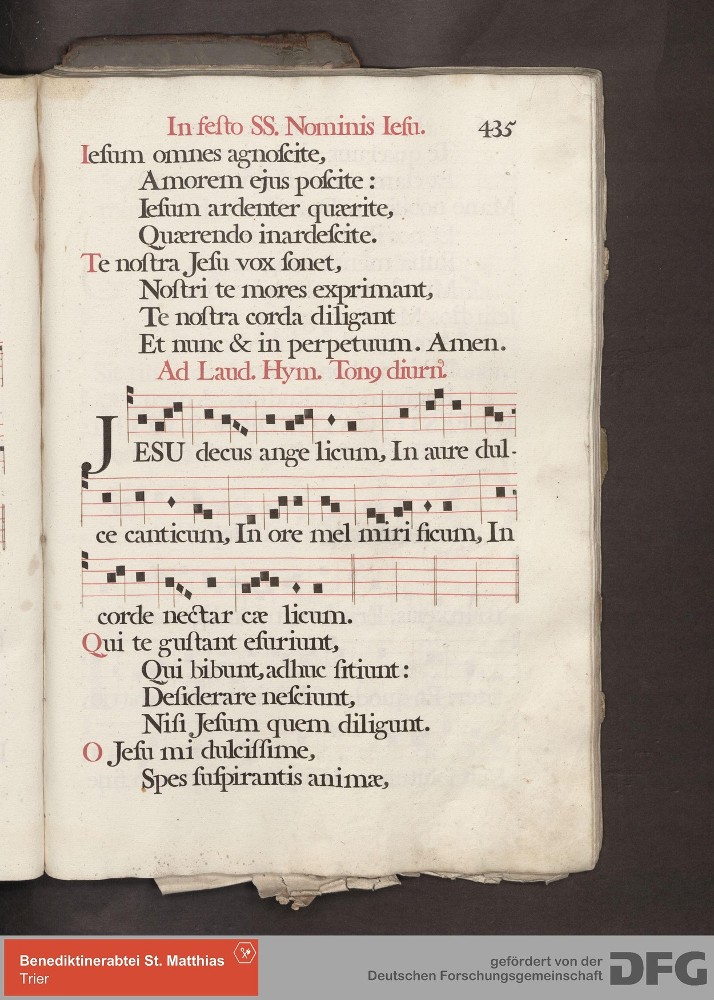 In feſto SS. Nominis Ieſu. 435
Ieſum omnes agnoſcite,
Amorem ejus poſcite :
Ieſum ardenter quærite,
Quærendo inardeſcite.
Te noſtra Jeſu vox ſonet,
Noſtri te mores exprimant,
Te noſtra corda diligant
Et nunc & in perpetuum. Amen.
Ad Laud. Hym. Tonꝯ diurn᾿.
JESU decus ange licum, In aure dul-
ce canticum, In ore mel miri ficum, In
corde nectar cæ licum.
Qui te guſtant eſuriunt,
Qui bibunt, adhuc ſitiunt :
Deſiderare neſciunt,
Niſi Jeſum quem diligunt.
O Jeſu mi dulciſſime,
Spes ſuſpirantis animæ,
Benediktinerabtei St. Matthias
Trier
gefördert von der
Deutschen Forschungsgemeinschaft
DFG